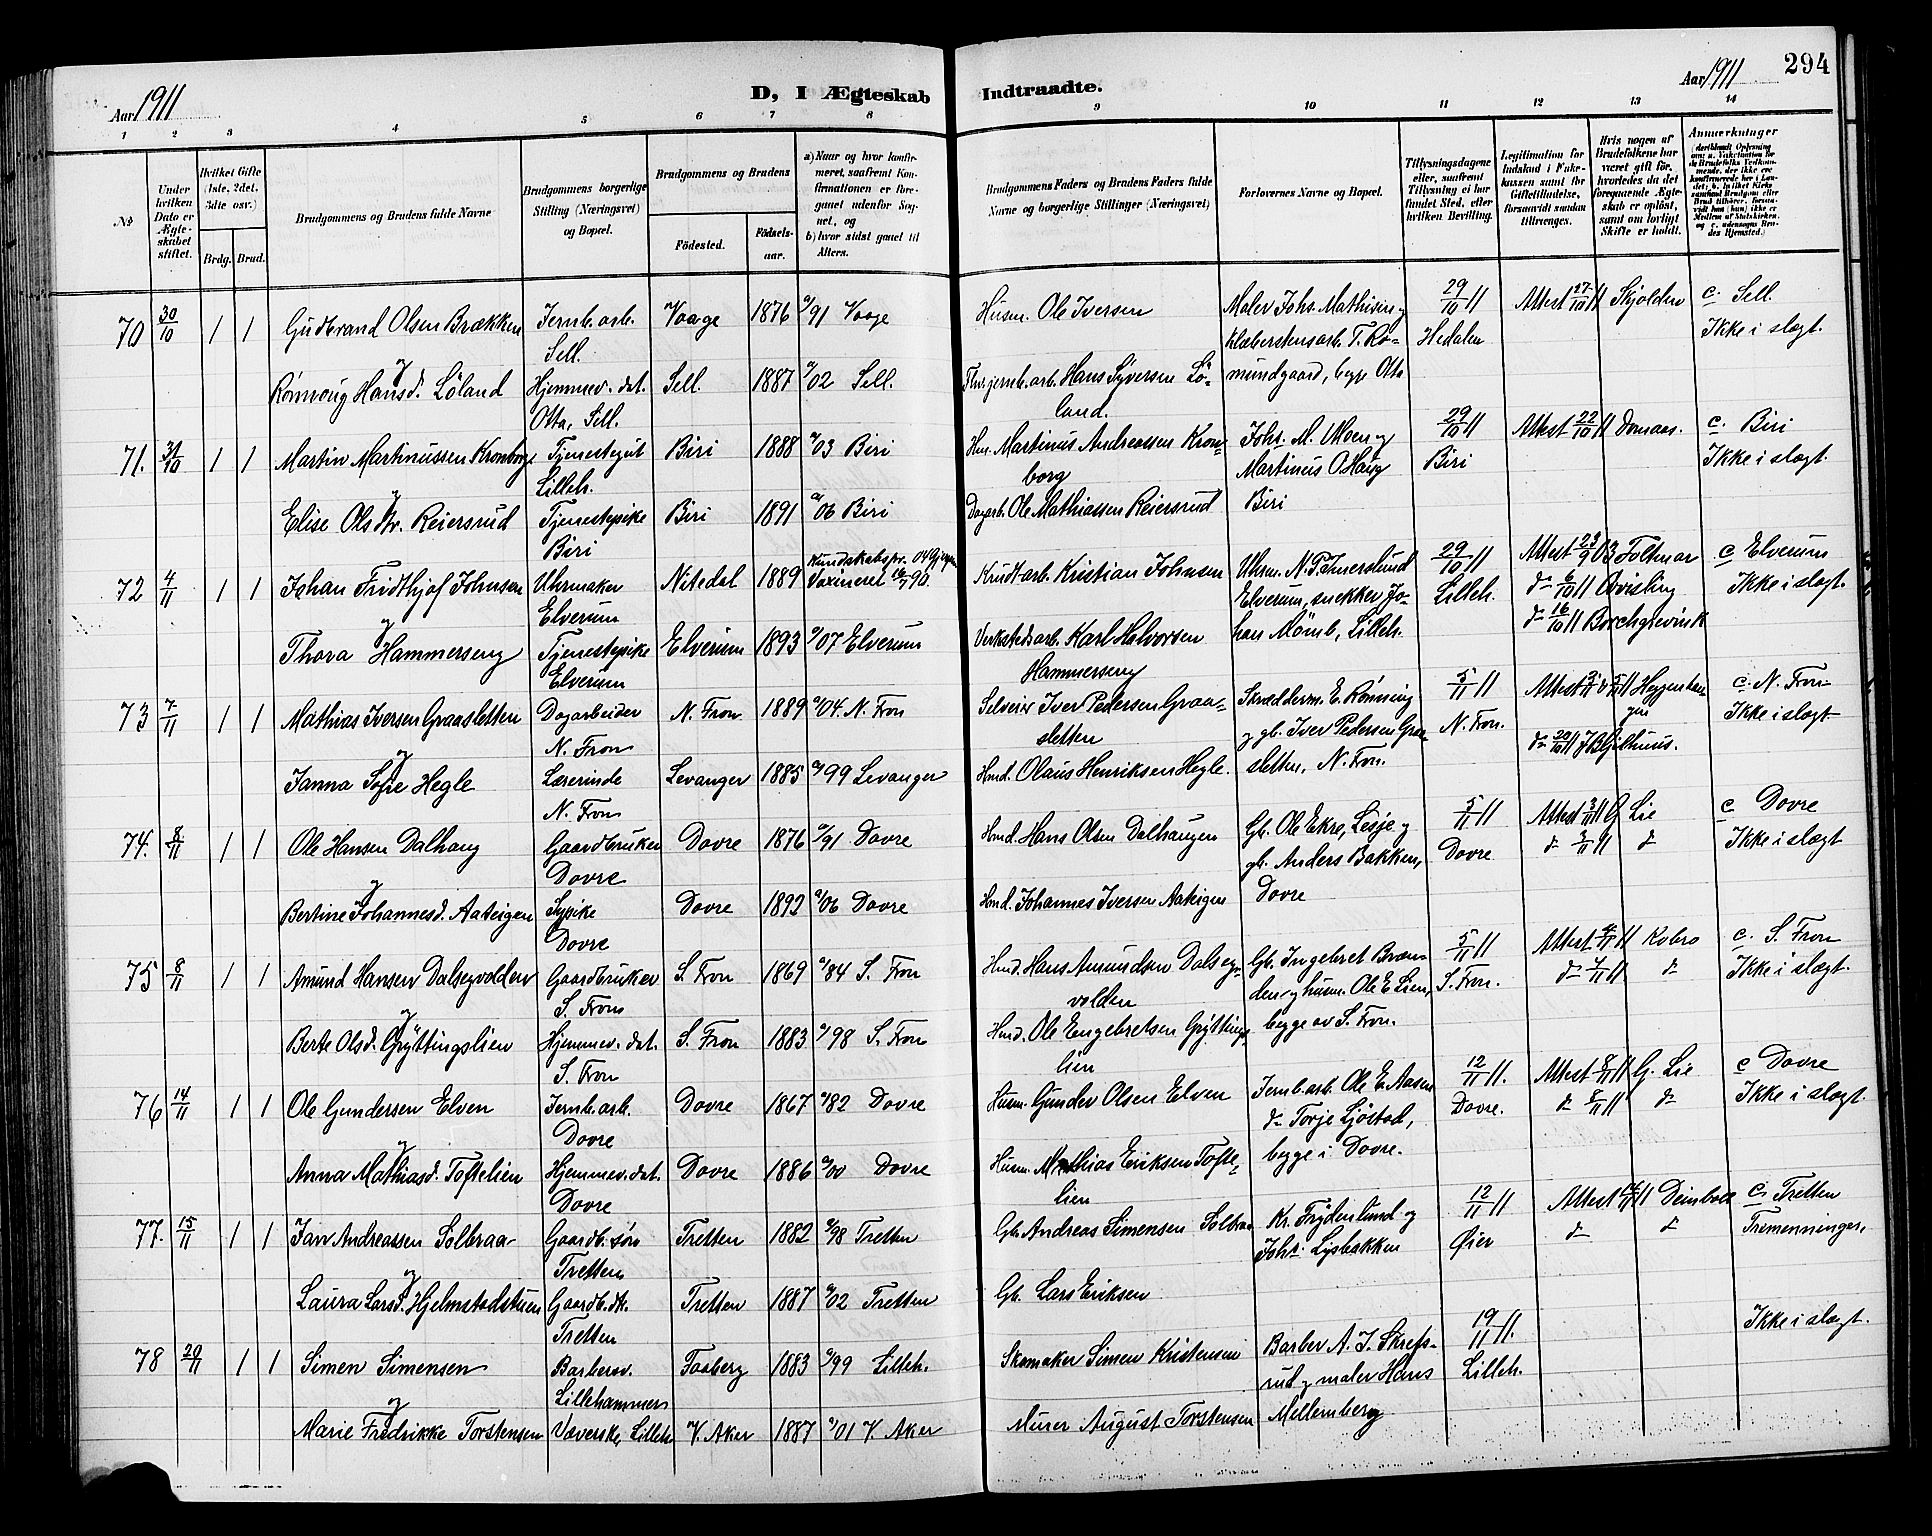 Aar 1911
D, I Ægteskab Indtraadte.
Aar 1911
294
1 2 3 4 5 6 7 8 9 10 11 12 13 14
№
Under hvilken Dato er Ægteskabet stiftet.
Hvilket Gifte (1ste, 2det, 3die osv.)
Brdg. Brud.
Brudgommens og Brudens fulde Navne
Brudgommens borgerlige Stilling (Næringsvei) og Bopæl.
Brudgommens og Brudens
Födested. Födselsaar.
a) Naar og hvor konfirmeret, saafremt Konfirmationen er foregaaet udenfor Sognet, og
b) hvor sidst gaaet til Alters.
Brudgommens Faders og Brudens Faders fulde Navne og borgerlige Stillinger (Næringsvei)
Forlovernes Navne og Bopæl.
Tillysningsdagene eller, saafremt Tillysning ei har fundet Sted, efter hvilken Bevilling.
Legitimation for Indskud i Enkekassen samt for Giftetilladelse, forsaavidt saadan tiltrænges.
Hvis nogen af Brudefolkene har været gift før, hvorledes da det foregaaende Ægteskab er oplöst, samt om lovligt Skifte er holdt.
Anmærkninger
70 30/10 1 1 Gudbrand Olsen Brækken Jernb.arb. Vaage 1876 91 Vaage Husm. Ole Iversen Maler Johs. Mathisen og 29/10 11 Attest 27/10 11 Skjolden c Sell.
Sell. Klæberstensarb. T. Ro- Hedalen Ikke i slægt.
og
Rönnoug Hansd. Löland Hjemmev. dat. Sell. 1887 02 Sell. Hans Syversen Lö- mundgaard, begge Otta
Otta, Sell. land.
71. 31/10 1 1 Martin Martinussen Kronborg Tjenestegut Biri 1888 03 Biri Hm. Martinus Andreassen Kron- Johs. M. Moen og 29/10 11 Attest 22/10 11 Domaas. c. Biri
Lilleh. borg Martinus O Haug Biri Ikke i slægt.
og
Elise Olsdtr. Reiersrud Tjenestepike Biri 1891 06 Biri Dagarb. Ole Mathiassen Reiersrud Biri
Biri
Kundskabspr. 04
72 4/11 1 1 Johan Fridthjof Johnsen Uhrmaker Nitedal 1889 Vaxineret 90. Krudtarb. Kristian Johnsen Uhrm. 29/10 11 Attest 23/9 03 c Elverum
Elverum Elverum, snekker Jo- Lilleh. do 6/10 11 Ikke i slægt.
og
Thora Hammerseng Tjenestepike Elverum 1893 07 Elverum Verkstedsarb. Karl Halvorsen han Lilleh. do 16/10 11 Borchgrevink
Elverum Hammerseng
73 7/11 1 1 Mathias Iversen Graasletten Dagarbeider N. Fron 1889 04 N. Fron Selveier Iver Pedersen Graa- Skrædderm. E. Rønning 5/11 11 Attest c. N. Fron
N. Fron sletten og gb. Iver Pedersen Graa- N. Fron. Ikke i slægt
og
Janna Sofie Hegle Lærerinde Levanger 1885 99 Levanger Hmd. Olaus Henriksen Hegle. sletten, N. Fron.
N. Fron
74. 8/11 1 1 Ole Hansen Dalhaug Gaardbruker Dovre 1876 91 Dovre Hmd. Hans Olsen Dalhaugen Gb. Ole Ekre, Lesje og 5/11 11 Attest 3/11 11 G Lie c Dovre
Dovre gb. Anders Bakken, Dovre do 3/11 11 do Ikke i slægt
og
Bertine Johannesd. Aateigen Sypike Dovre 1892 06 Dovre Hmd. Johannes Iversen Aateigen Dovre
Dovre
75 8/11 1 1 Amund Hansen Dalsegvolden Gaardbruker S. Fron 1869 84 S. Fron Hmd. Hans Amundsen Dalseg- Gb. Ingebret Bræn- 5/11 11 Attest 4/11 11 Kobro c. S. Fron
S. Fron volden den og husm. Ole E Lien, S. Fron. do 4/11 11 do Ikke i slægt.
og
Berte Olsd. Gryttingslien Hjemmev. dat. S. Fron 1883 98 S. Fron Hmd. Ole Engebretsen Gryttings- begge av S. Fron.
S. Fron lien
76 14/11 1 1 Ole Gundersen Elven Jernb.arb. Dovre 1867 82 Dovre Husm. Gunder Olsen Elven Jernb.arb. Ole E. Aasen 12/11 11. Attest 8/11 11 G. Lie c Dovre
Dovre do Torje Sjöstad, Dovre. do 8/11 11 do Ikke i slægt.
og
Anna Mathiasd. Toftelien Hjemmev. dat. Dovre 1886 00 Dovre Husm. Mathias Eriksen Tofte- begge i Dovre.
Dovre lien
77. 15/11 1 1 Jan Andreassen Solbraa Gaardb. sön Tretten 1882 98 Tretten Gb. Andreas Simensen Solbraa Kr. Frydenlund og 12/11 11 Attest 14/11 11 Deinboll c. Tretten
Tretten Johs. Lysbakken Øier do do Tremenninger.
og
Laura Larsd. Hjelmstadstuen Gaardb. dt. Tretten 1887 02 Tretten Gb. Lars Eriksen
Tretten
78 20/11 1 1 Simen Simensen Barbersv. Faaberg 1883 99 Lilleh. Skomaker Simen Kristensen Barber A. J. Skrefs- 19/11 11. Ikke i slægt.
Lillehammer rud og maler Hans Lilleh.
og
Marie Fredrikke Torstensen Væverske, Lilleh V. Aker 1887 01 V. Aker Murer August Torstensen Mellemberg